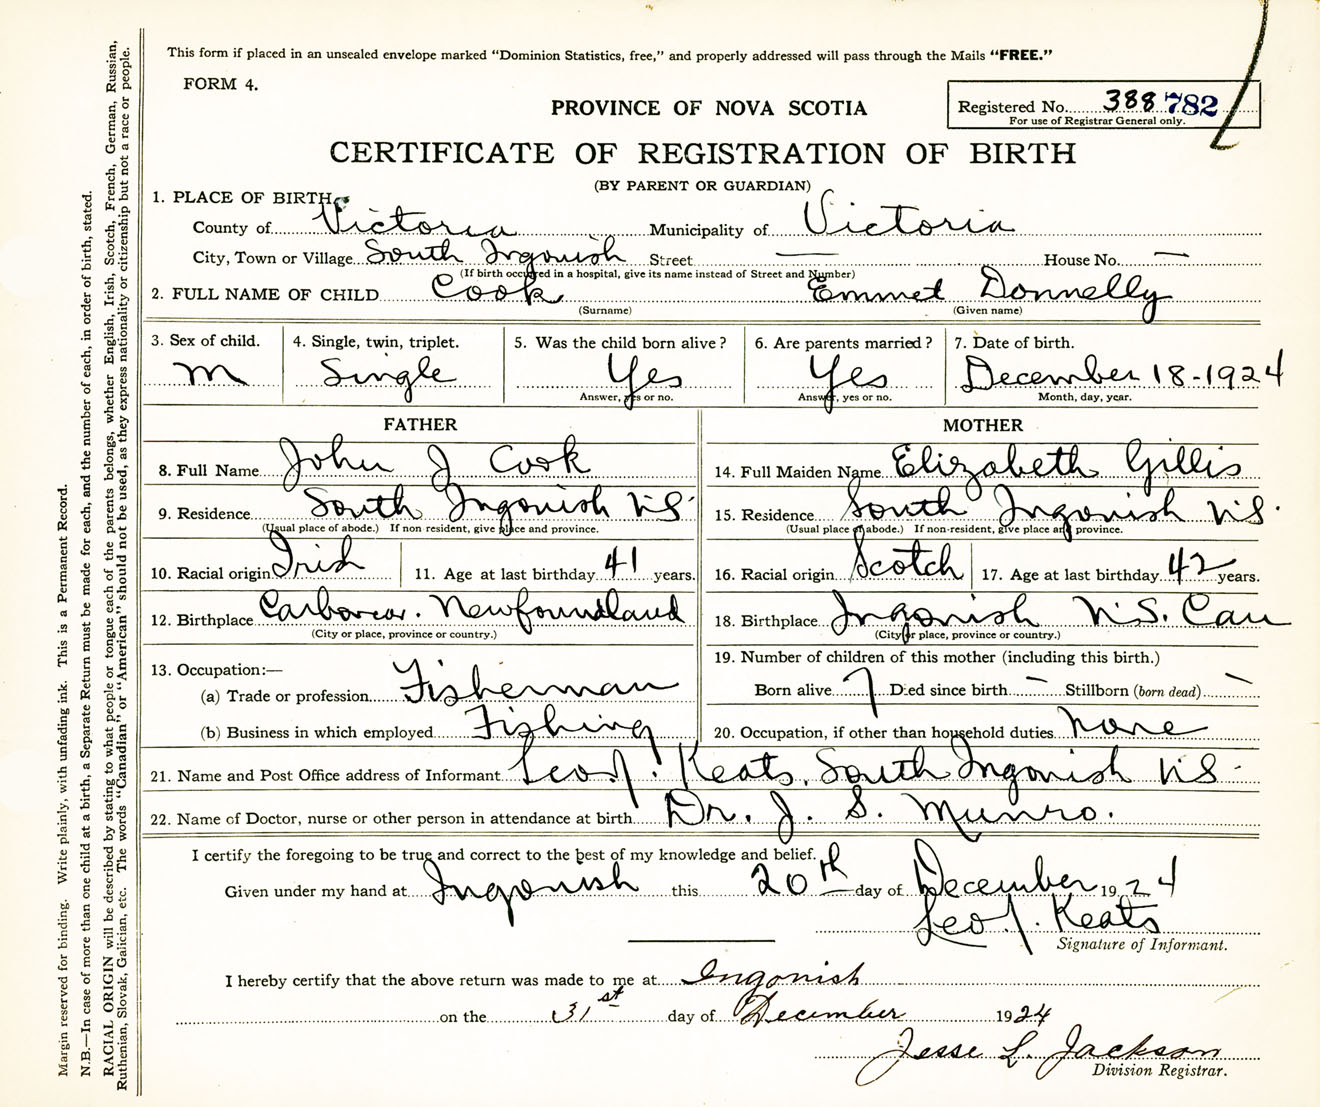 This form if placed in an unsealed envelope marked “Dominion Statistics, free,” and properly addressed will pass through the Mails “FREE.”
FORM 4.
PROVINCE OF NOVA SCOTIA
Registered No. 388 782
For use of Registrar General only.
CERTIFICATE OF REGISTRATION OF BIRTH
(BY PARENT OR GUARDIAN)
1. PLACE OF BIRTH
County of Victoria Municipality of Victoria
City, Town or Village South Ingonish Street — House No. —
(If birth occurred in a hospital, give its name instead of Street and Number)
2. FULL NAME OF CHILD Cook Emmet Donnelly
(Surname) (Given name)
3. Sex of child. 4. Single, twin, triplet. 5. Was the child born alive? 6. Are parents married? 7. Date of birth.
M Single Yes Yes December 18-1924
Answer, yes or no. Answer, yes or no. Month, day, year.
FATHER MOTHER
8. Full Name John J Cook 14. Full Maiden Name Elizabeth Gillis
9. Residence South Ingonish N.S. 15. Residence South Ingonish N.S.
(Usual place of abode.) If non resident, give place and province. (Usual place of abode.) If non-resident, give place and province.
10. Racial origin Irish 11. Age at last birthday 41 years. 16. Racial origin Scotch 17. Age at last birthday 42 years.
12. Birthplace Carbonear. Newfoundland 18. Birthplace Ingonish N.S. Can
(City or place, province or country.) (City or place, province or country.)
13. Occupation:— 19. Number of children of this mother (including this birth.)
(a) Trade or profession Fisherman Born alive 7 Died since birth — Stillborn (born dead) —
(b) Business in which employed Fishing 20. Occupation, if other than household duties None
21. Name and Post Office address of Informant Leo J. Keats, South Ingonish N.S.
22. Name of Doctor, nurse or other person in attendance at birth Dr. J. S. Munro.
I certify the foregoing to be true and correct to the best of my knowledge and belief.
Given under my hand at Ingonish this 20th day of December 1924
Leo J. Keats
Signature of Informant.
I hereby certify that the above return was made to me at Ingonish
on the 31st day of December 1924
Jesse L. Jackson
Division Registrar.
Margin reserved for binding. Write plainly, with unfading ink. This is a Permanent Record.
N.B.—In case of more than one child at a birth, a Separate Return must be made for each, and the number of each, in order of birth, stated.
RACIAL ORIGIN will be described by stating to what people or tongue each of the parents belongs, whether English, Irish, Scotch, French, German, Russian,
Ruthenian, Slovak, Galician, etc. The words “Canadian” or “American” should not be used, as they express nationality or citizenship but not a race or people.